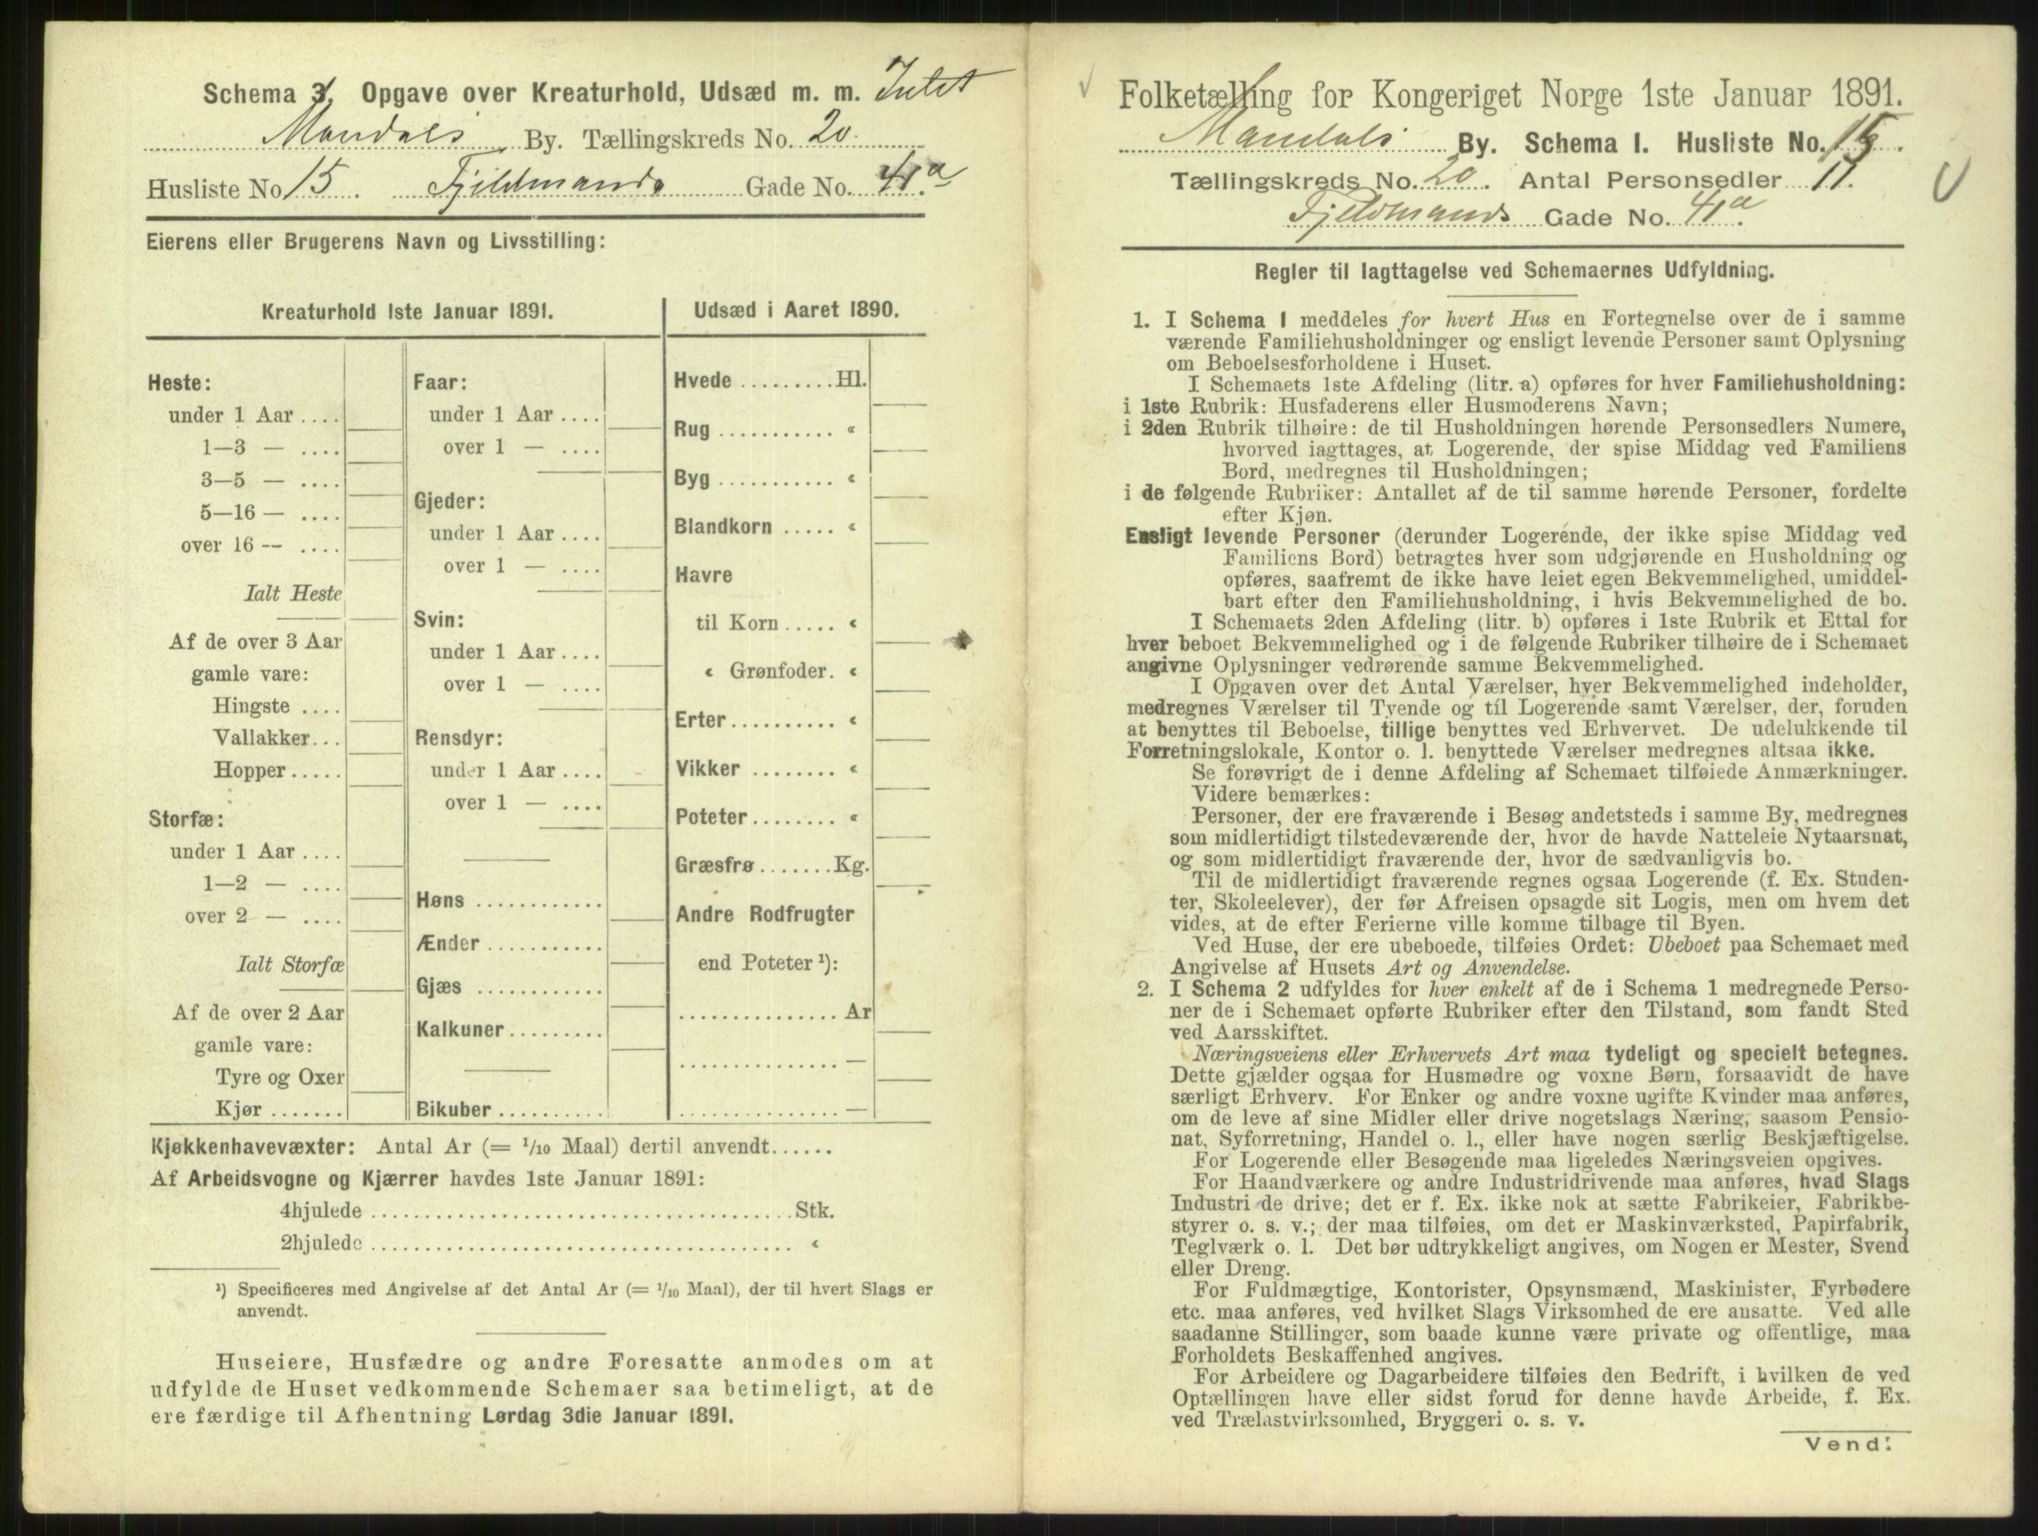 Schema 3. Opgave over Kreaturhold, Udsæd m. m. Intet
Mandals By. Tællingskreds No. 20.
Husliste No 15 Fjeldmands Gade No. 41 a
Eierens eller Brugerens Navn og Livsstilling:
Kreaturhold 1ste Januar 1891.
Heste:
under 1 Aar ....
1—3 — ....
3—5 — ....
5—16 — ....
over 16 -- ....
Ialt Heste
Af de over 3 Aar
gamle vare:
Hingste ....
Vallakker...
Hopper.....
Storfæ:
under 1 Aar ....
1—2 — ....
over 2 — ....
Ialt Storfæ
Af de over 2 Aar
gamle vare:
Tyre og Oxer
Kjør .......
Faar:
under 1 Aar ....
over 1 — ....
Gjeder:
under 1 Aar ....
over 1 — ....
Svin:
under 1 Aar ....
over 1 — ....
Rensdyr:
under 1 Aar ....
over 1 — ....
Høns ............
Ænder ...........
Gjæs ............
Kalkuner.........
Bikuber..........
Udsæd i Aaret 1890.
Hvede .........Hl.
Rug ........... «
Byg ........... «
Blandkorn ..... «
Havre
til Korn ..... «
« Grønfoder. «
Erter.......... «
Vikker ........ «
Poteter........ «
Græsfrø.......Kg.
Andre Rodfrugter
end Poteter ¹):
............... Ar
............... —
............... —
Kjøkkenhavevæxter: Antal Ar (= 1/10 Maal) dertil anvendt......
Af Arbeidsvogne og Kjærrer havdes 1ste Januar 1891:
4hjulede ........................................ Stk.
2hjulede ........................................ «
¹) Specificeres med Angivelse af det Antal Ar (= 1/10 Maal), der til hvert Slags er
anvendt.
Huseiere, Husfædre og andre Foresatte anmodes om at
udfylde de Huset vedkommende Schemaer saa betimeligt, at de
ere færdige til Afhentning Lørdag 3die Januar 1891.
Folketælling for Kongeriget Norge 1ste Januar 1891.
Mandals By. Schema I. Husliste No. 15.
Tællingskreds No. 20. Antal Personsedler 11.
Fjeldmands Gade No. 41 a
Regler til Iagttagelse ved Schemaernes Udfyldning.
1. I Schema 1 meddeles for hvert Hus en Fortegnelse over de i samme
værende Familiehusholdninger og ensligt levende Personer samt Oplysning
om Beboelsesforholdene i Huset.
I Schemaets 1ste Afdeling (litr. a) opføres for hver Familiehusholdning:
i 1ste Rubrik: Husfaderens eller Husmoderens Navn;
i 2den Rubrik tilhøire: de til Husholdningen hørende Personsedlers Numere,
hvorved iagttages, at Logerende, der spise Middag ved Familiens
Bord, medregnes til Husholdningen;
i de følgende Rubriker: Antallet af de til samme hørende Personer, fordelte
efter Kjøn.
Ensligt levende Personer (derunder Logerende, der ikke spise Middag ved
Familiens Bord) betragtes hver som udgjørende en Husholdning og
opføres, saafremt de ikke have leiet egen Bekvemmelighed, umiddel-
bart efter den Familiehusholdning, i hvis Bekvemmelighed de bo.
I Schemaets 2den Afdeling (litr. b) opføres i 1ste Rubrik et Ettal for
hver beboet Bekvemmelighed og i de følgende Rubriker tilhøire de i Schemaet
angivne Oplysninger vedrørende samme Bekvemmelighed.
I Opgaven over det Antal Værelser, hver Bekvemmelighed indeholder,
medregnes Værelser til Tyende og til Logerende samt Værelser, der, foruden
at benyttes til Beboelse, tillige benyttes ved Erhvervet. De udelukkende til
Forretningslokale, Kontor o. l. benyttede Værelser medregnes altsaa ikke.
Se forøvrigt de i denne Afdeling af Schemaet tilføiede Anmærkninger.
Videre bemærkes:
Personer, der ere fraværende i Besøg andetsteds i samme By, medregnes
som midlertidigt tilstedeværende der, hvor de havde Natteleie Nytaarsnat,
og som midlertidigt fraværende der, hvor de sædvanligvis bo.
Til de midlertidigt fraværende regnes ogsaa Logerende (f. Ex. Studen-
ter, Skoleelever), der før Afreisen opsagde sit Logis, men om hvem det
vides, at de efter Ferierne ville komme tilbage til Byen.
Ved Huse, der ere ubeboede, tilføies Ordet: Ubeboet paa Schemaet med
Angivelse af Husets Art og Anvendelse.
2. I Schema 2 udfyldes for hver enkelt af de i Schema 1 medregnede Perso-
ner de i Schemaet opførte Rubriker efter den Tilstand, som fandt Sted
ved Aarsskiftet.
Næringsveiens eller Erhvervets Art maa tydeligt og specielt betegnes.
Dette gjælder ogsaa for Husmødre og voxne Børn, forsaavidt de have
særligt Erhverv. For Enker og andre voxne ugifte Kvinder maa anføres,
om de leve af sine Midler eller drive nogetslags Næring, saasom Pensio-
nat, Syforretning, Handel o. l., eller have nogen særlig Beskjæftigelse.
For Logerende eller Besøgende maa ligeledes Næringsveien opgives.
For Haandværkere og andre Industridrivende maa anføres, hvad Slags
Industri de drive; det er f. Ex. ikke nok at sætte Fabrikeier, Fabrikbe-
styrer o. s. v.; der maa tilføies, om det er Maskinværksted, Papirfabrik,
Teglværk o. l. Det bør udtrykkeligt angives, om Nogen er Mester, Svend
eller Dreng.
For Fuldmægtige, Kontorister, Opsynsmænd, Maskinister, Fyrbødere
etc. maa anføres, ved hvilket Slags Virksomhed de ere ansatte. Ved alle
saadanne Stillinger, som baade kunne være private og offentlige, maa
Forholdets Beskaffenhed angives.
For Arbeidere og Dagarbeidere tilføies den Bedrift, i hvilken de ved
Optællingen have eller sidst forud for denne havde Arbeide, f. Ex.
ved Trælastvirksomhed, Bryggeri o. s. v.
Vend!